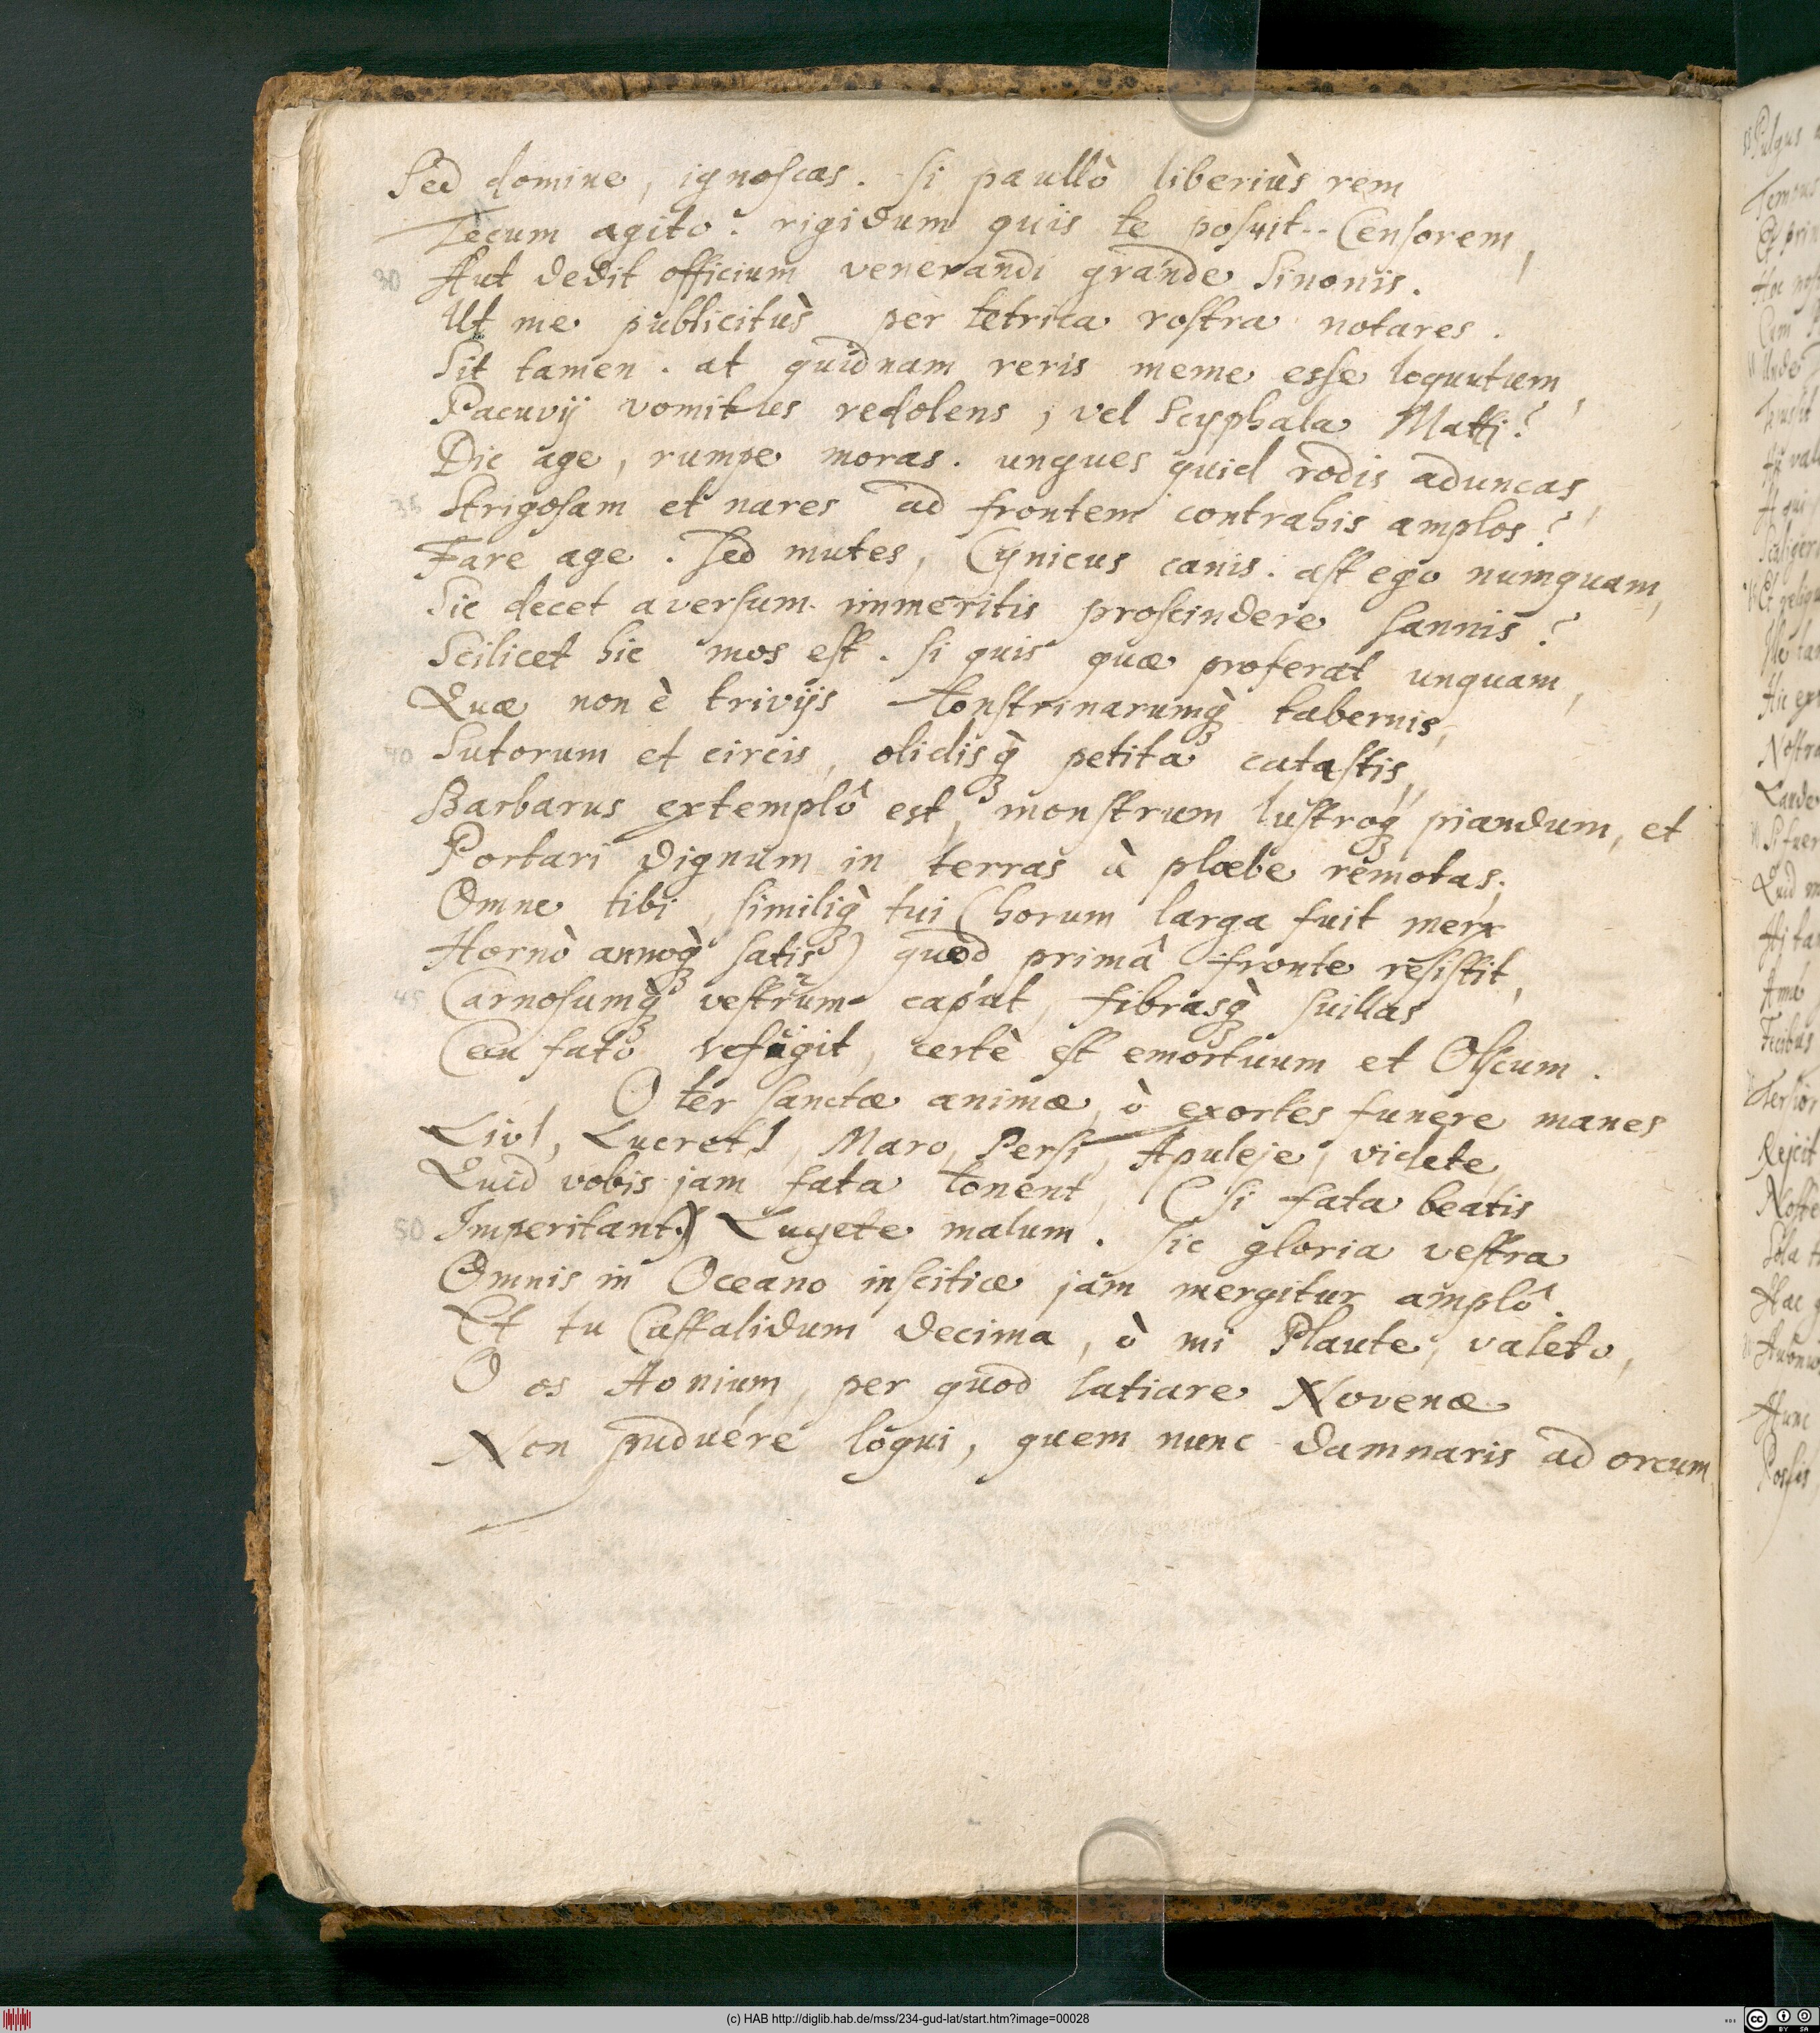 Sed domine, ignoscas. si paullò liberiùs rem
Tecum agito. rigidum quis te posuit Censorem,
30 Aut dedit officium venerandi grande Sinonis.
Ut me publicitùs per tetrica rostra notares.
Sit tamen. at quidnam reris meme esse loquutum,
Pacuvij vomitus redolens, vel Scyphala Matti?
Dic age, rumpe moras. ungues quid rodis aduncas,
35 Strigosam et nares ad frontem contrahis amplos?
Fare age. Sed mutes, Cynicus canis. ast ego numquam,
Sic decet aversum immeritis proscindere sannis?
Scilicet hic mos est. si quis quæ proferat unquam,
Quæ non è trivijs tonstrinarumq̀ꝫ tabernis,
40 Sutorum et circis, olidisq̀ꝫ petita catastis,
Barbarus extemplô est, monstrum lustroq̀ꝫ piandum, et
Portari dignum in terras à plæbe remotas;
Omne tibi, similiq̀ꝫ tui (horum larga fuit merx
Hornò annoq̀ꝫ satis) quod primâ fronte resistit,
45 Carnosumq̀ꝫ vestrum caput, fibrasq̀ꝫ suillas
Ceu fato refugit, certè est emortuum et Olscum.
O ter sanctæ animæ, ò exortes funere manes
Livî, Lucretî, Maro, Persi, Apuleje, videte,
Quid vobis jam fata tonent, (si fata beatis
50 Imperitant.) Lugete malum. sic gloria vestra
Omnis in Oceano inscitiæ jam mergitur amplô.
Et tu Castalidum decima, ò mi Plaute, valeto,
O os Aonium, per quod latiare Novenæ
Non puduére loqui, quem nunc damnaris ad orcum
(c) HAB http://diglib.hab.de/mss/234-gud-lat/start.htm?image=00028